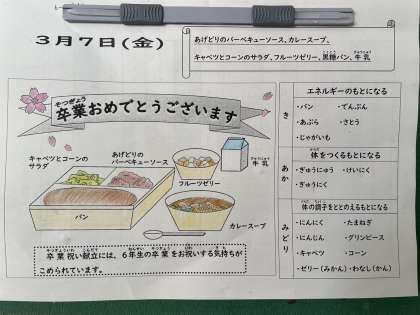 3月7日(金)
あげどりのバーベキューソース、カレースープ、
キャベツとコーンのサラダ、フルーツゼリー、黒糖パン、牛乳
卒業おめでとうございます
キャベツとコーンの
サラダ
あげどりの
バーベキューソース
牛乳
フルーツゼリー
パン
カレースープ
卒業祝い献立には、6年生の卒業をお祝いする気持ちが
こめられています。
き
エネルギーのもとになる
・パン ・でんぷん
・あぶら ・さとう
・じゃがいも
あか
体をつくるもとになる
・ぎゅうにゅう ・けいにく
・ぎゅうにく
みどり
体の調子をととのえるもとになる
・にんにく ・たまねぎ
・にんじん ・グリンピース
・キャベツ ・コーン
・ゼリー(みかん) ・わなし(かん)